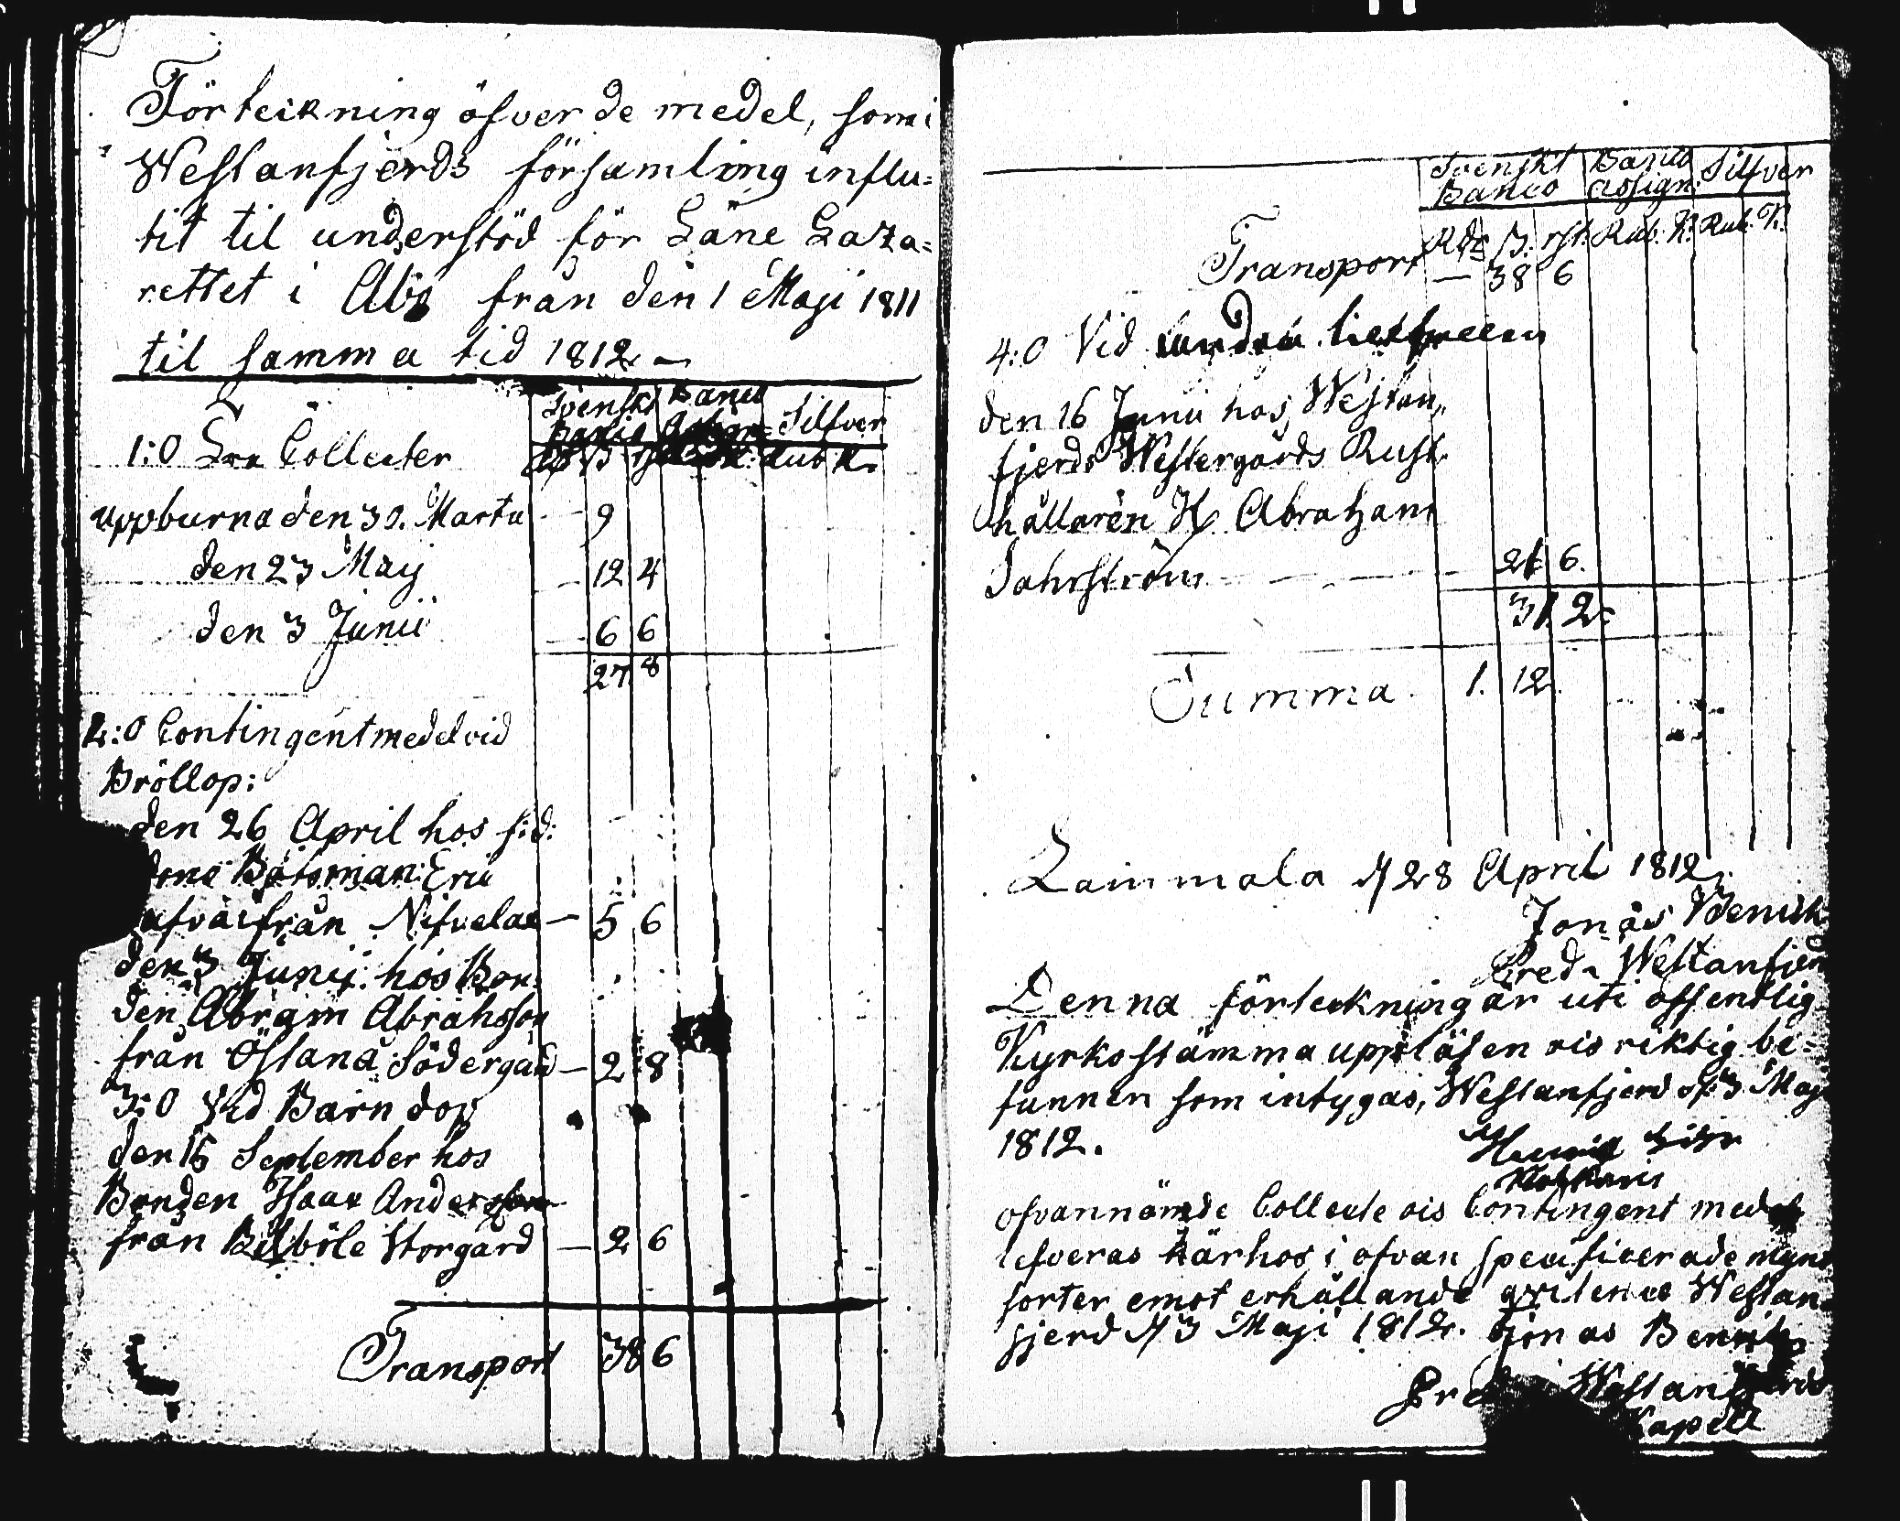 Förteckning öfver de medel, som i
Westanfjerds församling influ=
tit til understöd för Läne Laza=
rettet i Åbo från den 1 Maji 1811
til samma tid 1812. —
Svenskt Banco Silfver
1:o Collecter Rub K.
uppburna den 30. Martii — 9
den 23 Maij — 12 4
den 3 Junii — 6 6
27 8
2:o Contingent medel vid
Bröllop:
den 26 April hos f:d:
Båtsman Eric
från Nifvelax — 5 6
den 3 Junij hos Bon=
den Abram Abrahsson
från Östanå Södergård — 2 8
3:o Vid Barn dop
den 16 September hos
Bonden Isaac Andersson
från Bilböle Storgård — 2 6
Transport 38 6
Svenskt Banco Silfver
Banco assign:
Rdr ß. rst. Rub. K. Rub. K.
Transport — 38 6
4:o Vid andra
den 16 Junii hos Westan=
fjerds Westergårds Rust=
hållaren H Abraham
Sahrström 6.
31. 2.
Summa 1. 12.
Lammala d 28 April 1812.
Jonas
Pred. i Westanfjerd
Denna förteckning är uti offentlig
Kyrkostämma uppläsen ock riktig be=
funnen som intygas, Westanfjerd d 3 Maji
1812.
ofvannämde Collecte ock Contingent medel
lefveras härhos i ofvan specificerade mynt
sorter emot erhållande qvitence Westan=
fjerd d 3 Maji 1812. Jonas
Westanfjerds
Kapell